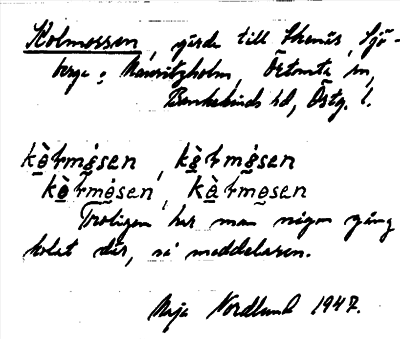 Kolmossen, gärde till Skenäs, Sjö-
berga o. Mauritzholm, Östomta sn,
Bankekinds hd, Östg. l.
kò̱ɫmósen, kò̱ɫmósen
kò̱ɫmo̱sen, kò̱ɫmo̱sen
Troligen har man någon gång
kolat där, sa meddelaren.
Maja Nordlund 1947.